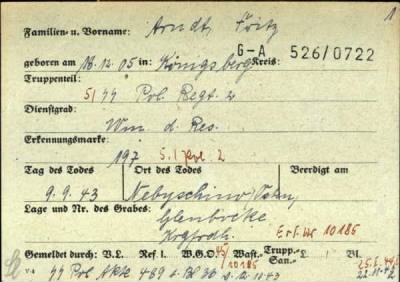 1
Familien- u. Vorname: Arndt, Fritz
G-A 526/0722
geboren am 18.12.05 in: Königsberg Kreis:
Truppenteil:
5/ϟϟ Pol. Regt. 2
Dienstgrad:
Wm. d. Res.
Erkennungsmarke:
197 5./Pol. 2
Tag des Todes Ort des Todes Beerdigt am
9.9.43 Nebyschino
Lage und Nr. des Grabes:
Glenbocke
Erf. Nr 10185
Gemeldet durch: V.L. Ref. I. W.G.O. Wast.- Trupp.- San.- L. Bl.
ϟϟ Pol. Akte 489 10185 22.11.43